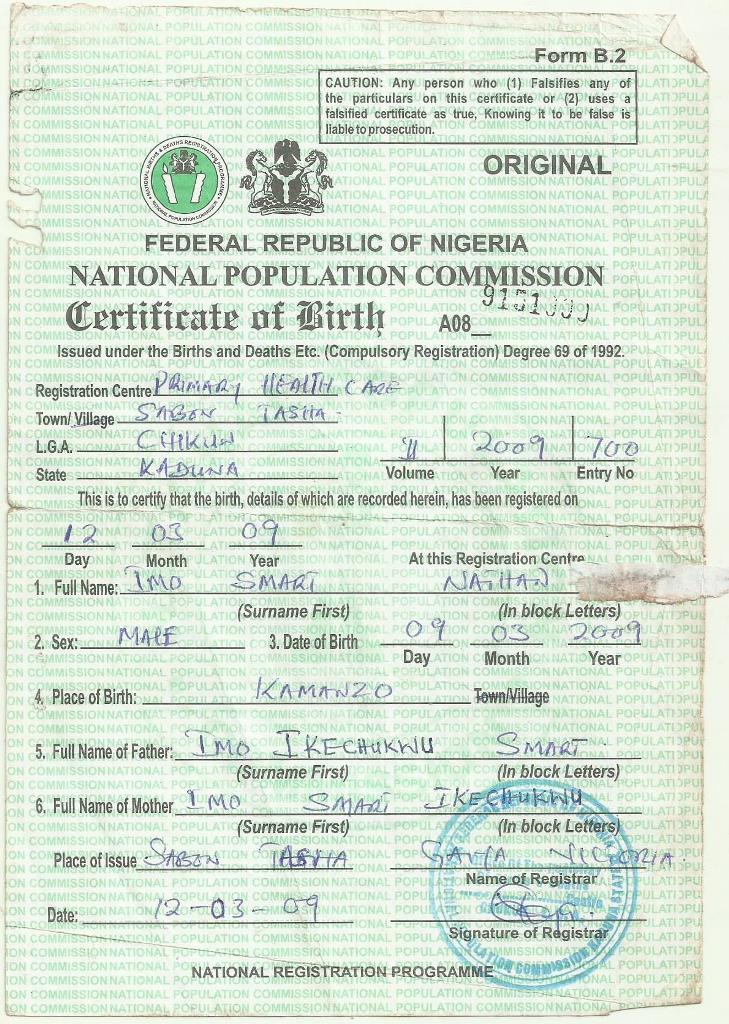 Form B.2
CAUTION: Any person who (1) Falsifies any of
the particulars on this certificate or (2) uses a
falsified certificate as true, Knowing it to be false is
liable to prosecution.
ORIGINAL
FEDERAL REPUBLIC OF NIGERIA
NATIONAL POPULATION COMMISSION
Certificate of Birth A08
Issued under the Births and Deaths Etc. (Compulsory Registration) Degree 69 of 1992.
Registration Centre PRIMARY HEALTH CARE
Town/ Village SABON TASHA
L.G.A. CHIKUN
State KADUNA
II 2009 700
Volume Year Entry No
This is to certify that the birth, details of which are recorded herein, has been registered on
12 03 09
Day Month Year At this Registration Centre
1. Full Name: IMO SMART NATHAN
(Surname First) (In block Letters)
2. Sex: MALE 3. Date of Birth 09 03 2009
Day Month Year
4. Place of Birth: KAMANZO Town/Village
5. Full Name of Father: IMO IKECHUKWU SMART
(Surname First) (In block Letters)
6. Full Name of Mother IMO SMART IKECHUKWU
(Surname First) (In block Letters)
Place of Issue SABON TASHA VICTORIA
Name of Registrar
Date: 12-03-09
Signature of Registrar
NATIONAL REGISTRATION PROGRAMME